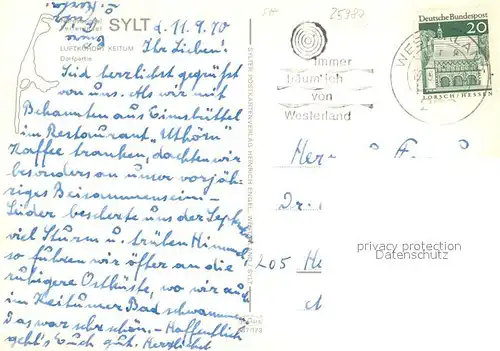 SYLT d. 11.9.70
LUFTKURORT KEITUM
Dorfpartie
Ihr Lieben!
Seid herzlichst gegrüßt
von uns. Als wir mit
Bekannten aus Eimsbüttel
im Restaurant „Uthörn"
Kaffee tranken, dachten wir
besonders an unser vorjäh-
riges Beisammensein –
Leider bescherte uns der September
viel Sturm u. trüben Himmel
so fuhren wir öfter an die
ruhigere Ostküste, wo wir auch
im Keitumer Bad schwammen
Das war sehr schön. – Hoffentlich
geht's Euch gut. Herzlichst
25987
Immer
träum' ich
von
Westerland
DEUTSCHE BUNDESPOST
20
LORSCH/HESSEN
Dr.
205
privacy protection
Datenschutz